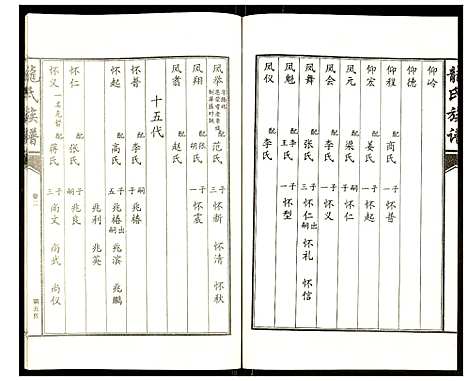 龍氏族譜
仰岭
仰德
仰程 配商氏 子一 怀普
仰宏 配姜氏 子一 怀起
凤元 配梁氏 嗣一 怀仁
凤会 配李氏 子一 怀义
凤舞 配张氏 子三 怀仁出嗣 怀礼 怀信
凤魁 配李氏 王氏 子一 怀型
凤仪 配李氏
凤举 配范氏 子三 怀新 怀清 怀秋
凤翔 配张氏 胡氏 子一 怀宬
凤翥 配赵氏
十五代
怀普 配李氏 子一 兆椿
怀起 配高氏 子五 兆椿出嗣 兆滨 兆鹏 兆利 兆英
怀仁 配张氏 嗣一 兆良
怀义 配蒋氏 子三 尚文 尚武 尚仪
龍氏族譜
卷二
第五页